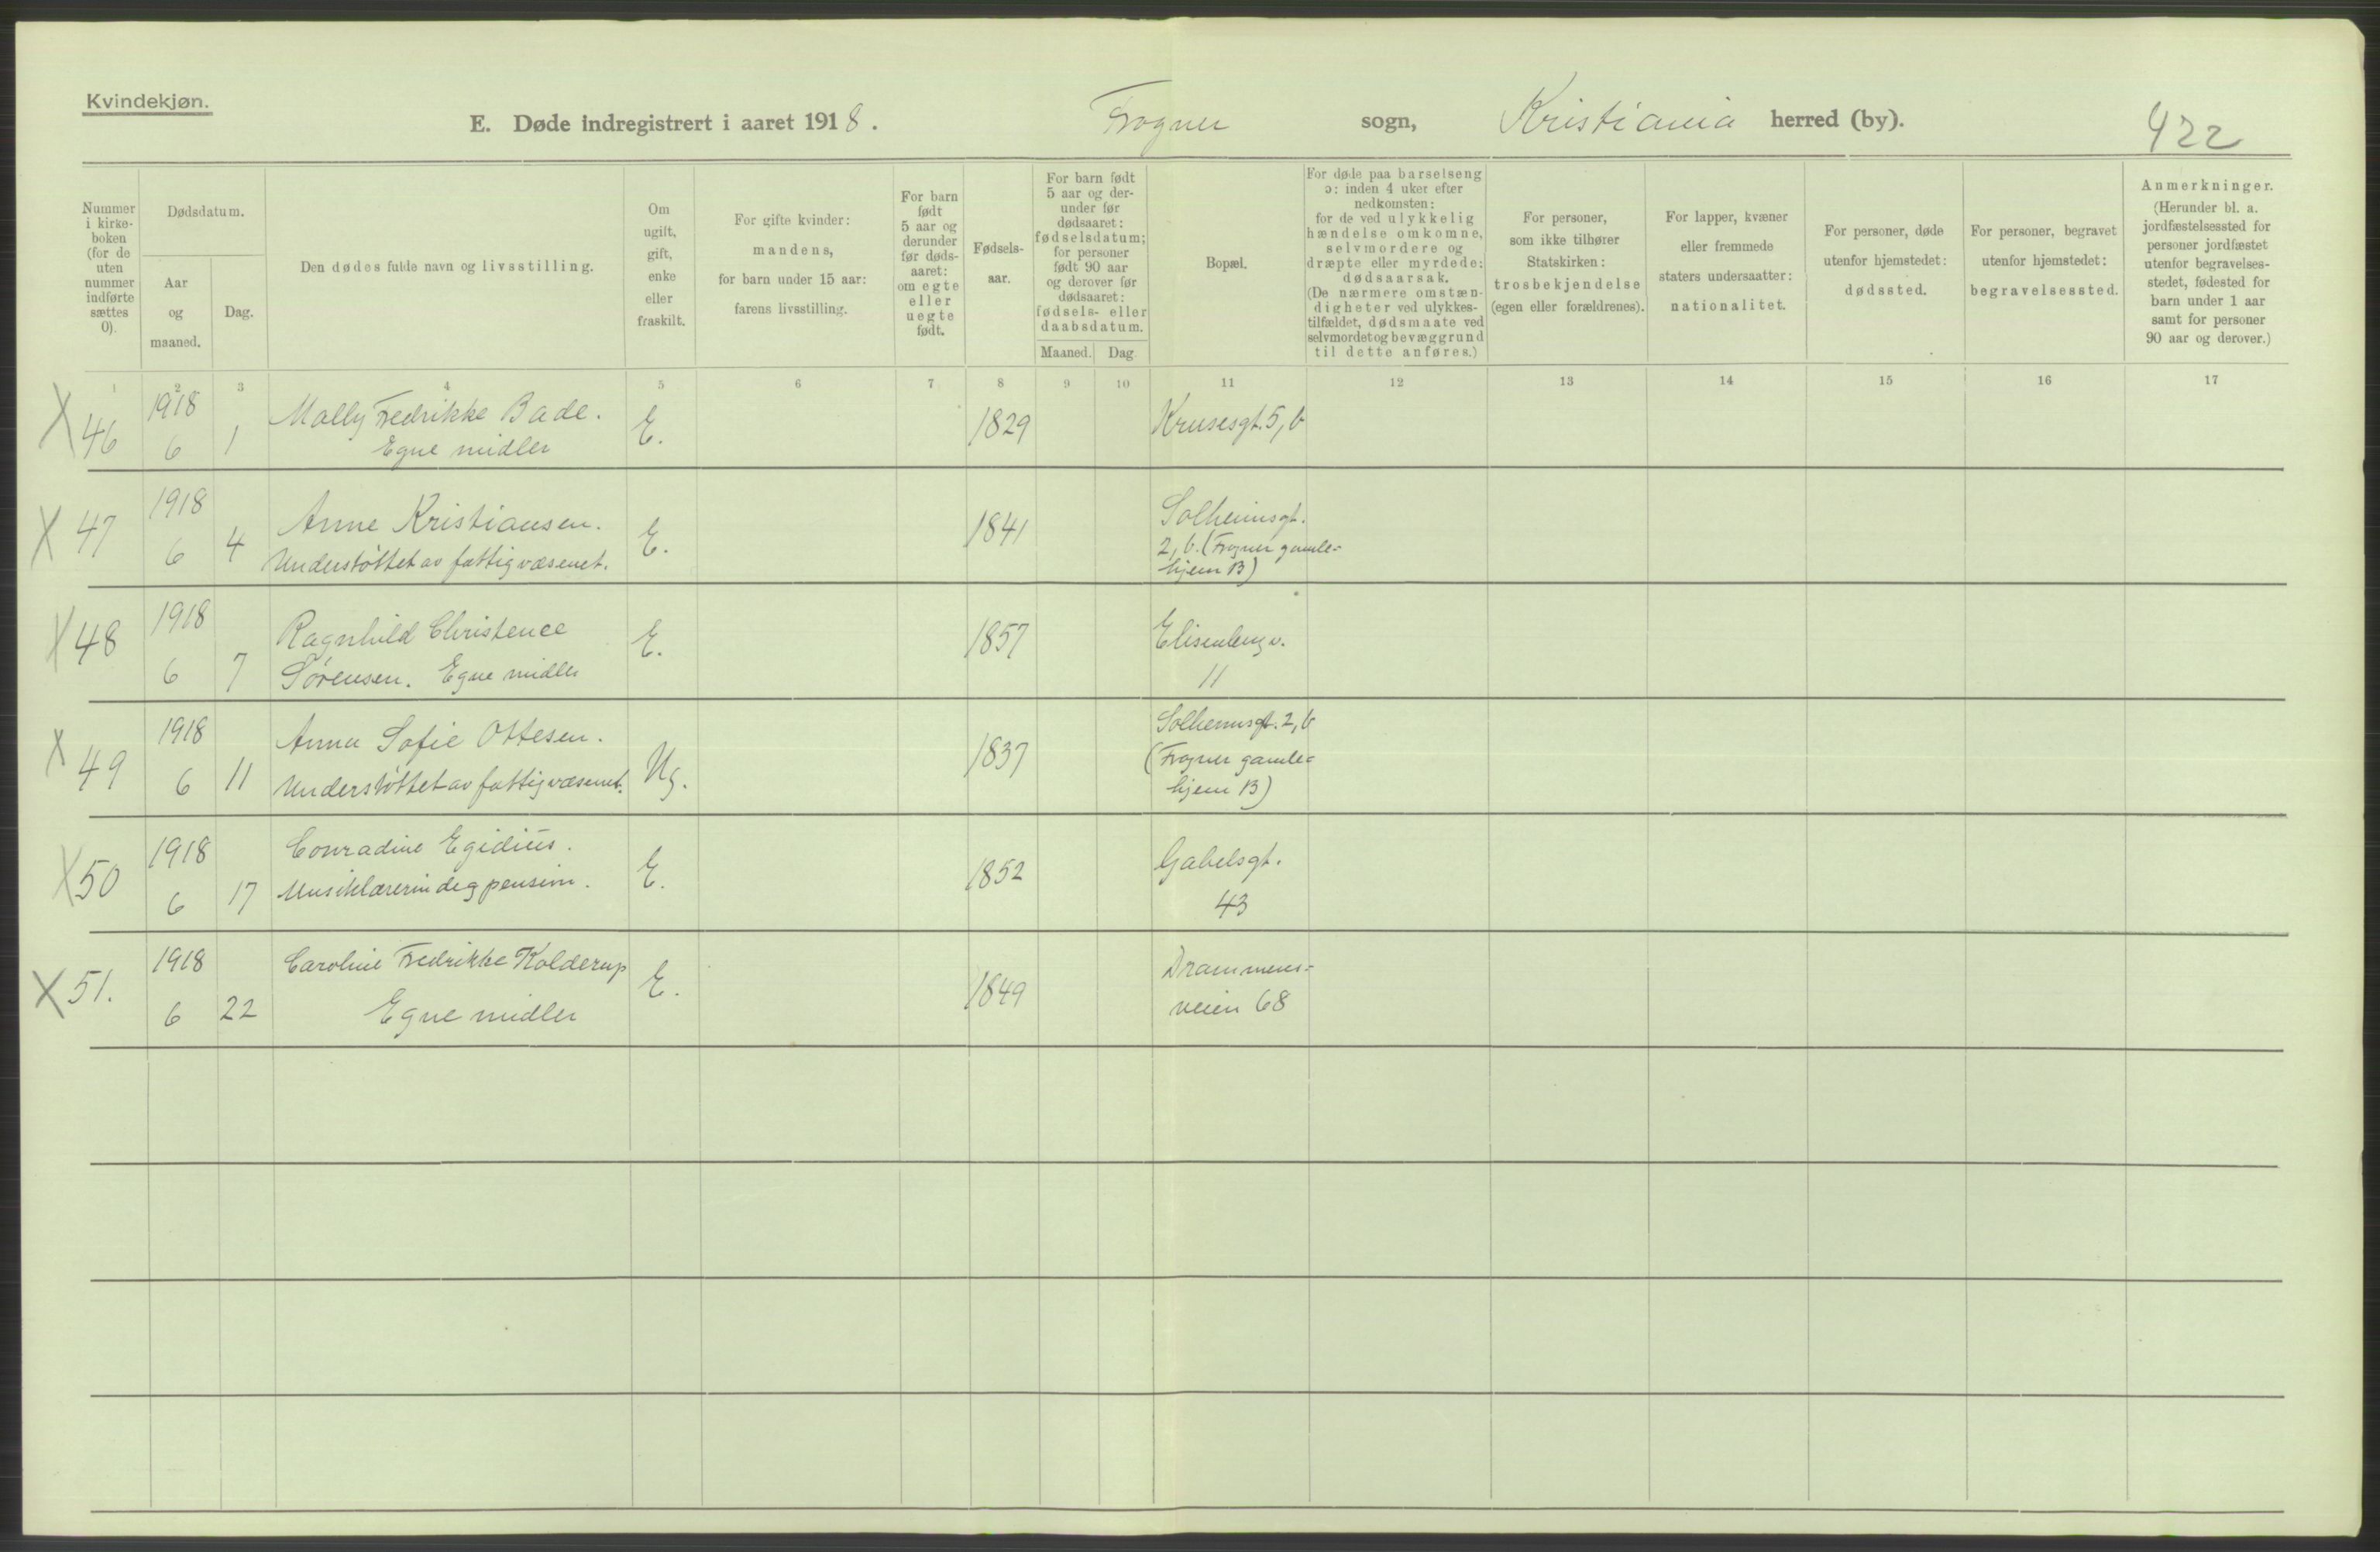 Kvindekjøn.
E. Døde indregistrert i aaret 1918. Frogner sogn, Kristiania herred (by). 422
Nummer
i kirke-
boken
(for de
uten
nummer
indførte
sættes
0).
Dødsdatum.
Aar
og
maaned.
Dag.
Den dødes fulde navn og livsstilling.
Om
ugift,
gift,
enke
eller
fraskilt.
For gifte kvinder:
mandens,
for barn under 15 aar:
farens livsstilling.
For barn
født
5 aar og
derunder
før døds-
aaret:
om egte
eller
uegte
født.
Fødsels-
aar.
For barn født
5 aar og der-
under før
dødsaaret:
fødselsdatum;
for personer
født 90 aar
og derover før
dødsaaret:
fødsels- eller
daabsdatum.
Maaned. Dag
Bopæl.
For døde paa barselseng
ɔ: inden 4 uker efter
nedkomsten:
for de ved ulykkelig
hændelse omkomne,
selvmordere og
dræpte eller myrdede:
dødsaarsak.
(De nærmere omstæn-
digheter ved ulykkes-
tilfældet, dødsmaate ved
selvmordet og bevæggrund
til dette anføres.)
For personer,
som ikke tilhører
Statskirken:
trosbekjendelse
(egen eller forældrenes).
For lapper, kvæner
eller fremmede
staters undersaatter:
nationalitet.
For personer, døde
utenfor hjemstedet:
dødssted.
For personer, begravet
utenfor hjemstedet:
begravelsessted.
Anmerkninger.
(Herunder bl. a.
jordfæstelsessted for
personer jordfæstet
utenfor begravelses-
stedet, fødested for
barn under 1 aar
samt for personer
90 aar og derover.)
1 2 3 4 5 6 7 8 9 10 11 12 13 14 15 16 17
X 46 1918 6 1 Molly Fredrikke Bade.
Egne midler
E. 1829 Krusesgt. 5, b
X 47 1918 6 4 Anne Kristiansen.
Understøttet av fattigvæsenet.
E. 1841 Solheimsgt.
2, b. (Frogner gamle-
hjem B)
X 48 1918 6 7 Ragnhild Christence
Sørensen. Egne midler
E. 1857 Elisenberg v.
11
X 49 1918 6 11 Anna Sofie Ottesen.
Understøttet av fattigvæsenet.
Ug. 1837 Solheimsgt. 2, b
(Frogner gamle-
hjem B)
X 50 1918 6 17 Conradine Egidius.
Musiklærerinde g pension.
E. 1852 Gabelsgt.
43
X 51. 1918 6 22 Caroline Fredrikke Kolderup
Egne midler
E. 1849 Drammens-
veien 68